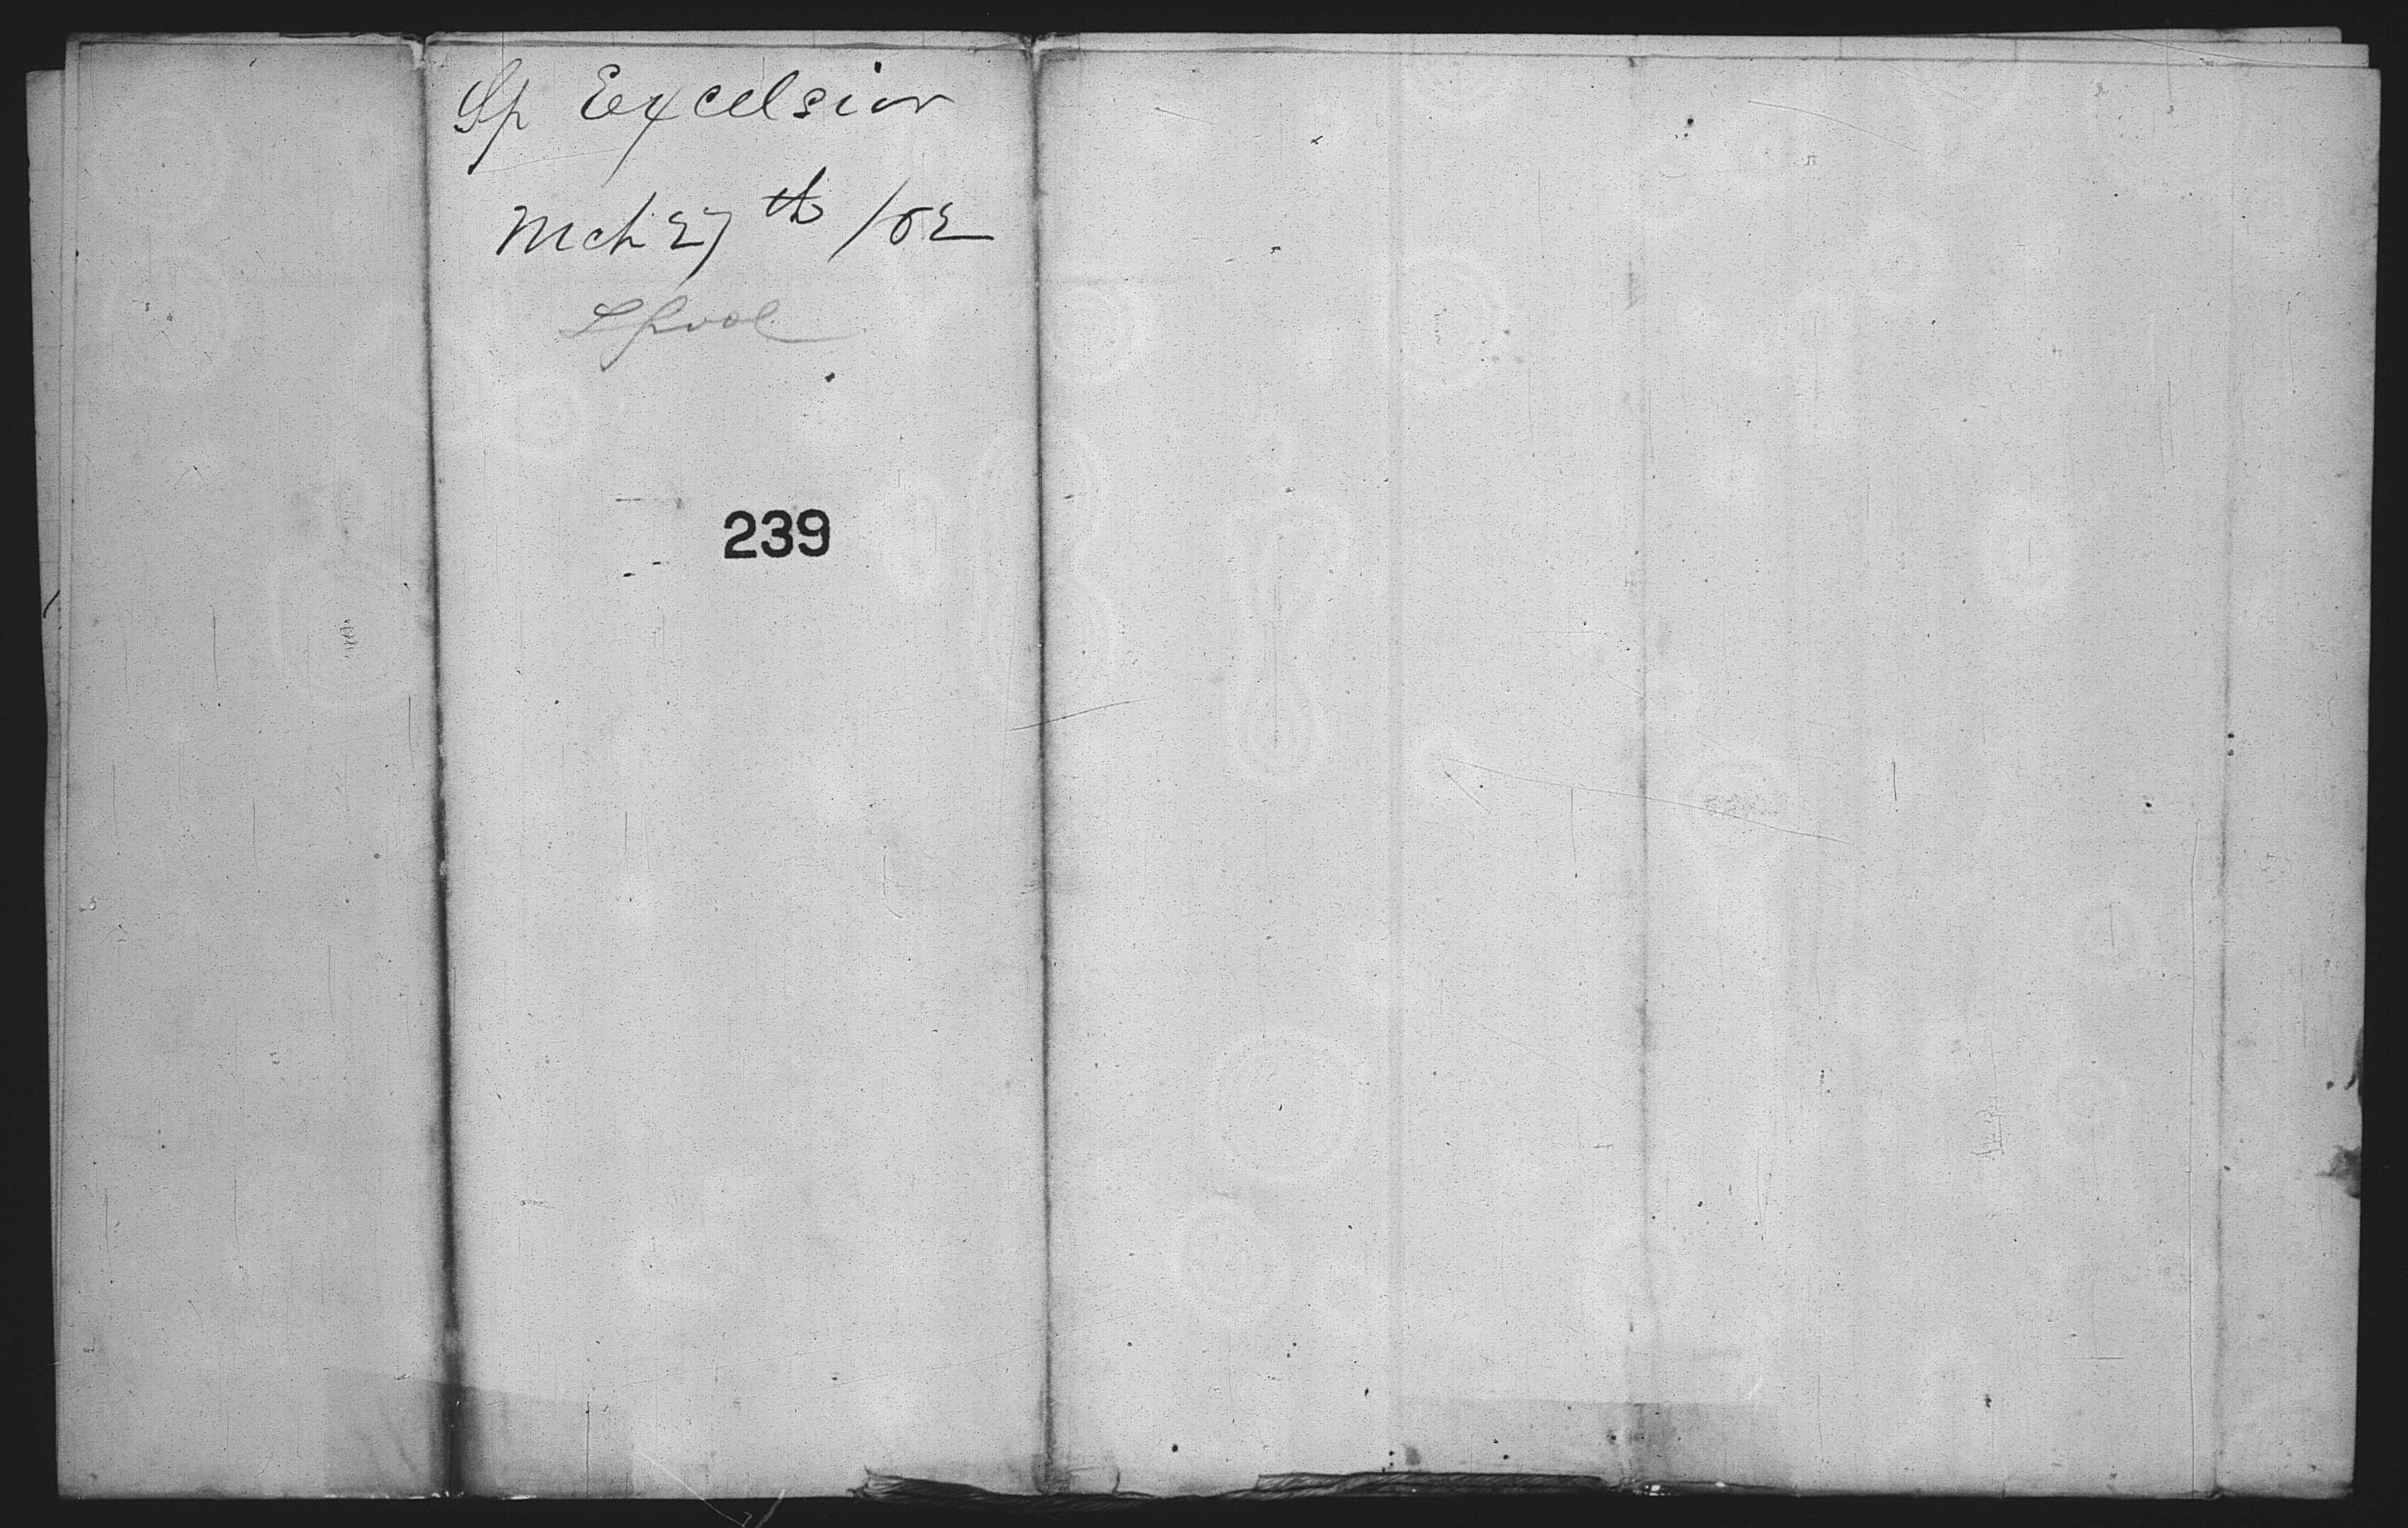 Sp Excelsior
Mch 27th /52
Lpool
239